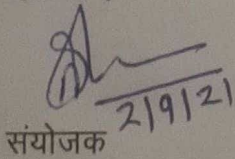 2/9/21
संयोजक